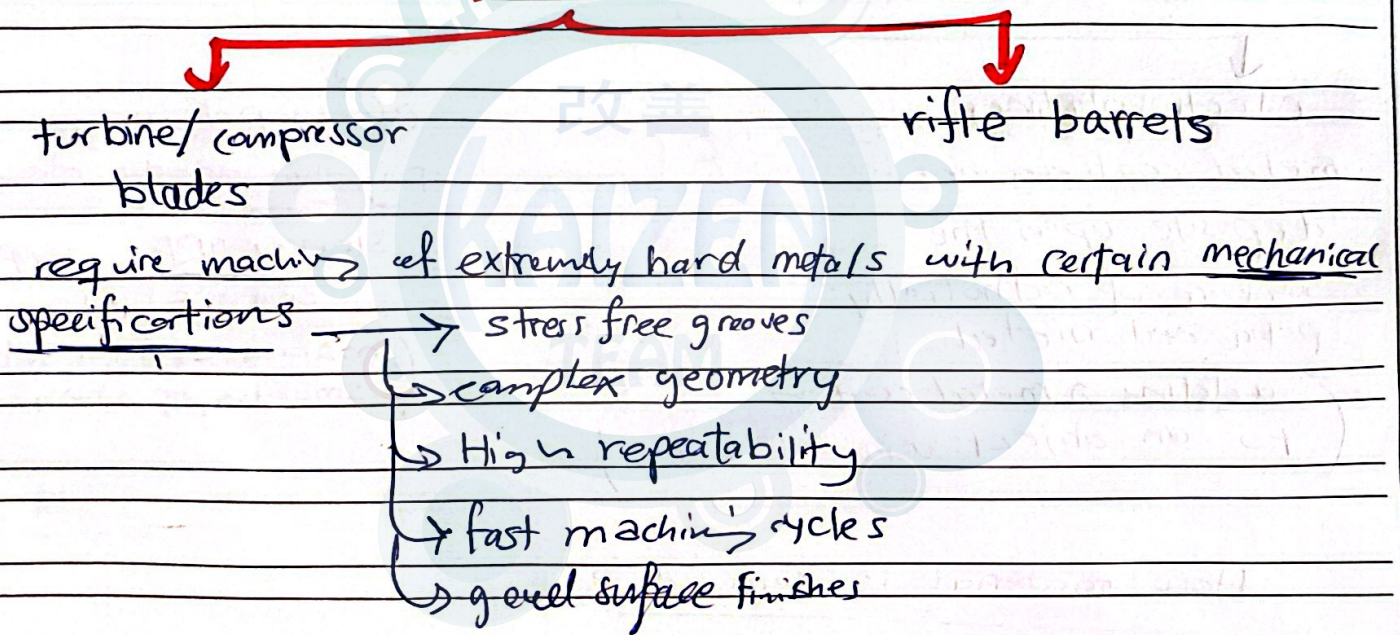 turbine/compressor rifle barrels
blades
require machining of extremely hard metals with certain mechanical
specifications → stress free grooves
→ complex geometry
→ High repeatability
→ fast machining cycles
→ good surface finishes
改善
KAIZEN
TEAM